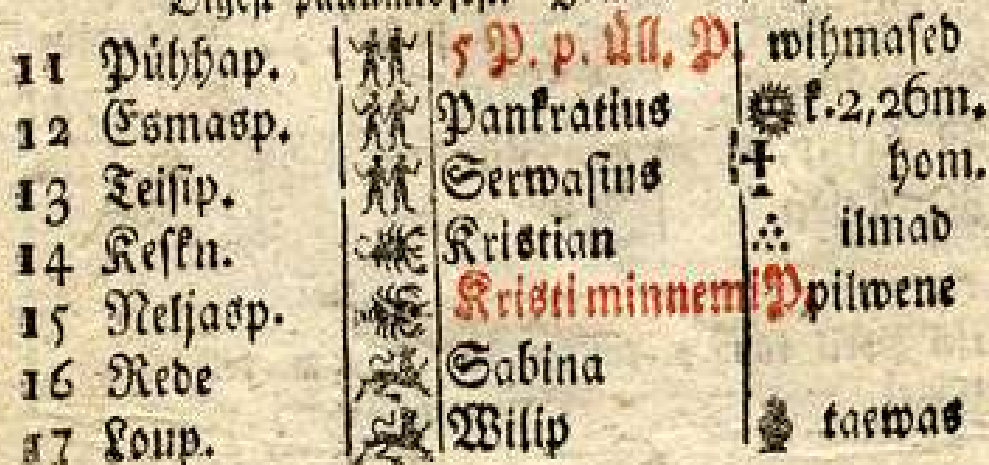 11 Pühhap. 5 P. p. Üll. P. wihmased
12 Esmasp. Pankratius k. 2, 26m.
13 Teisip. Serwasius hom.
14 Keskn. Kristian ilmad
15 Neljasp. Kristi minnemi P. pilwene
16 Rede Sabina
17 Loup. Wilip taewas